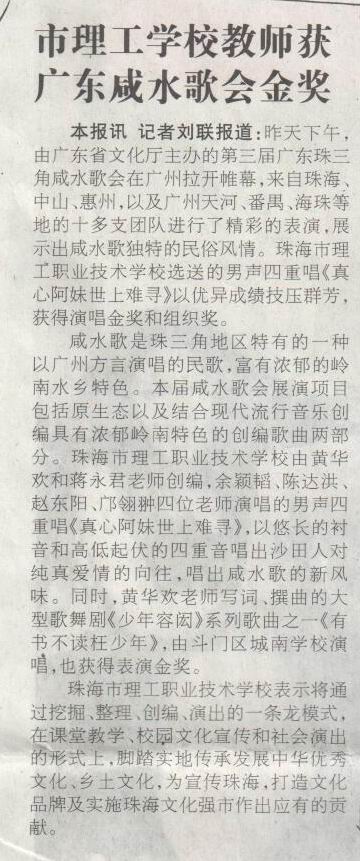 市理工学校教师获
广东咸水歌会金奖
本报讯 记者刘联报道:昨天下午,
由广东省文化厅主办的第三届广东珠三
角咸水歌会在广州拉开帷幕,来自珠海、
中山、惠州,以及广州天河、番禺、海珠等
地的十多支团队进行了精彩的表演,展
示出咸水歌独特的民俗风情。珠海市理
工职业技术学校选送的男声四重唱《真
心阿妹世上难寻》以优异成绩技压群芳,
获得演唱金奖和组织奖。
咸水歌是珠三角地区特有的一种
以广州方言演唱的民歌,富有浓郁的岭
南水乡特色。本届咸水歌会展演项目
包括原生态以及结合现代流行音乐创
编具有浓郁岭南特色的创编歌曲两部
分。珠海市理工职业技术学校由黄华
欢和蒋永君老师创编,余颖韬、陈达洪、
赵东阳、邝翎翀四位老师演唱的男声四
重唱《真心阿妹世上难寻》,以悠长的衬
音和高低起伏的四重音唱出沙田人对
纯真爱情的向往,唱出咸水歌的新风
味。同时,黄华欢老师写词、撰曲的大
型歌舞剧《少年容闳》系列歌曲之一《有
书不读枉少年》,由斗门区城南学校演
唱,也获得表演金奖。
珠海市理工职业技术学校表示将通
过挖掘、整理、创编、演出的一条龙模式,
在课堂教学、校园文化宣传和社会演出
的形式上,脚踏实地传承发展中华优秀
文化、乡土文化,为宣传珠海,打造文化
品牌及实施珠海文化强市作出应有的贡
献。